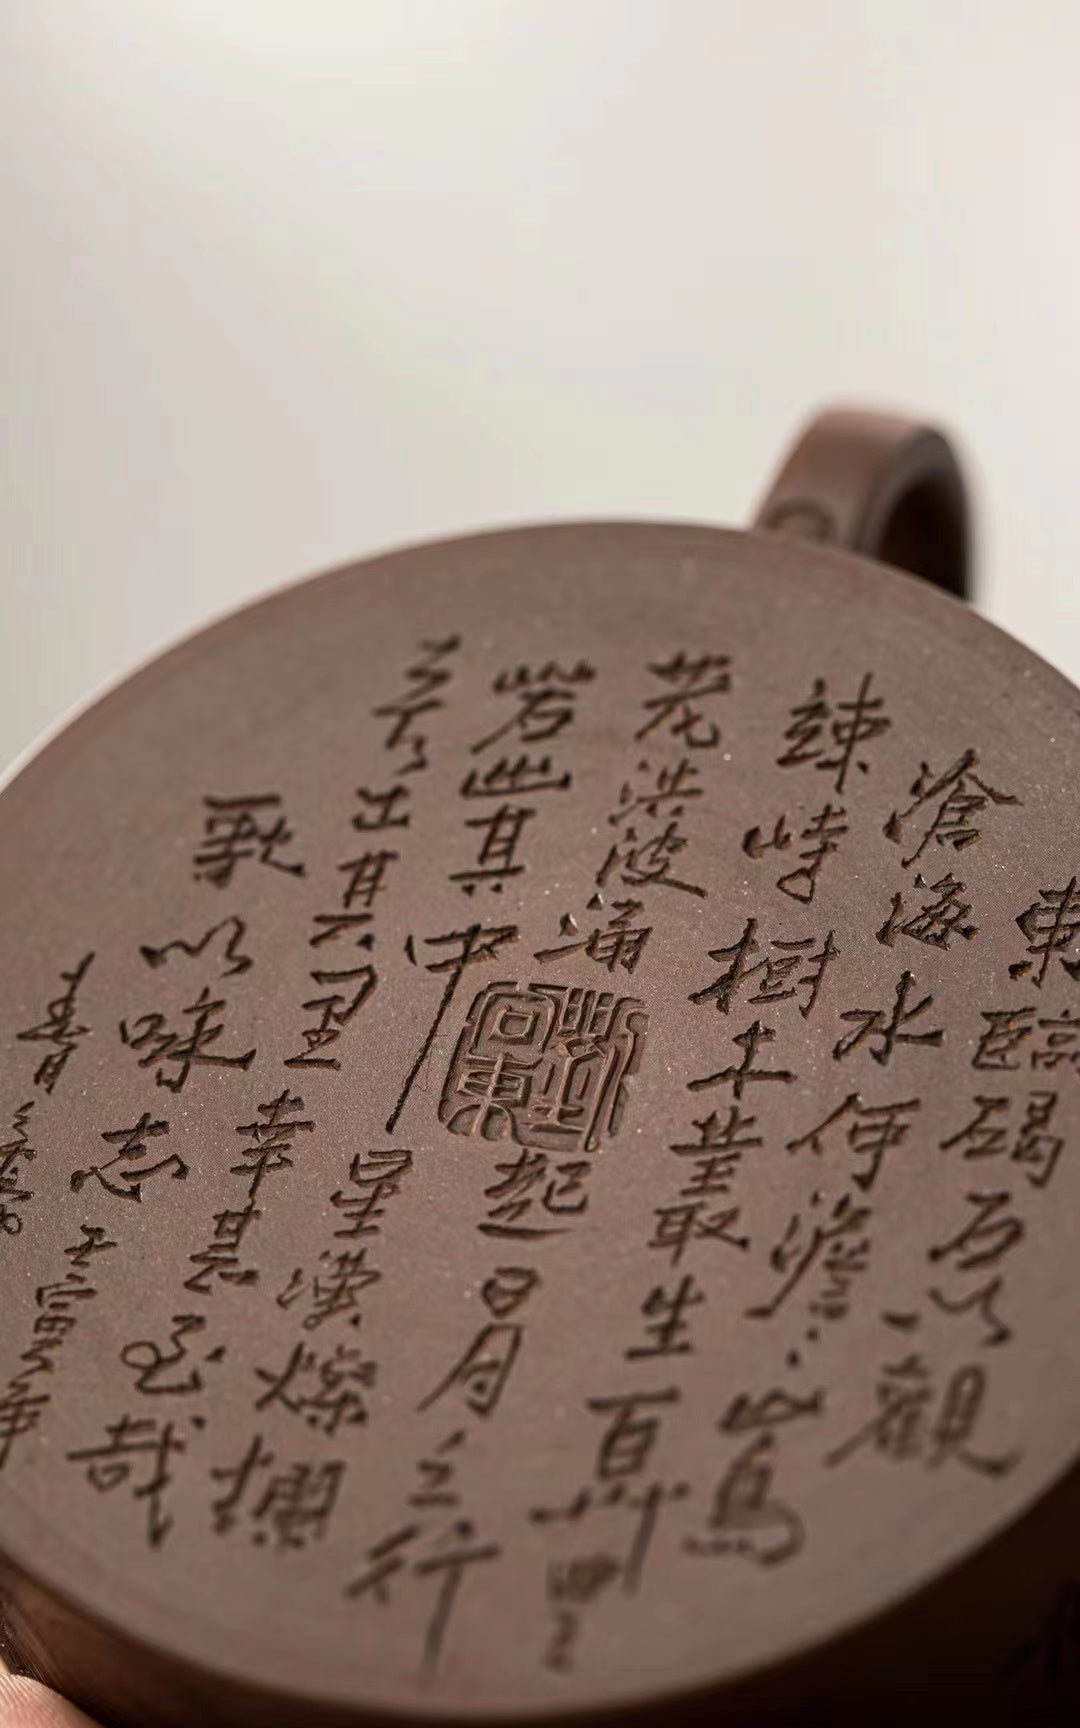 東臨碣石以觀
滄海水何澹〻山島
竦峙樹木叢生百艸豐
茂洪波涌起日月之行
若出其中星漢燦爛
若出其里幸甚至哉
歌以咏志壬寅年
春